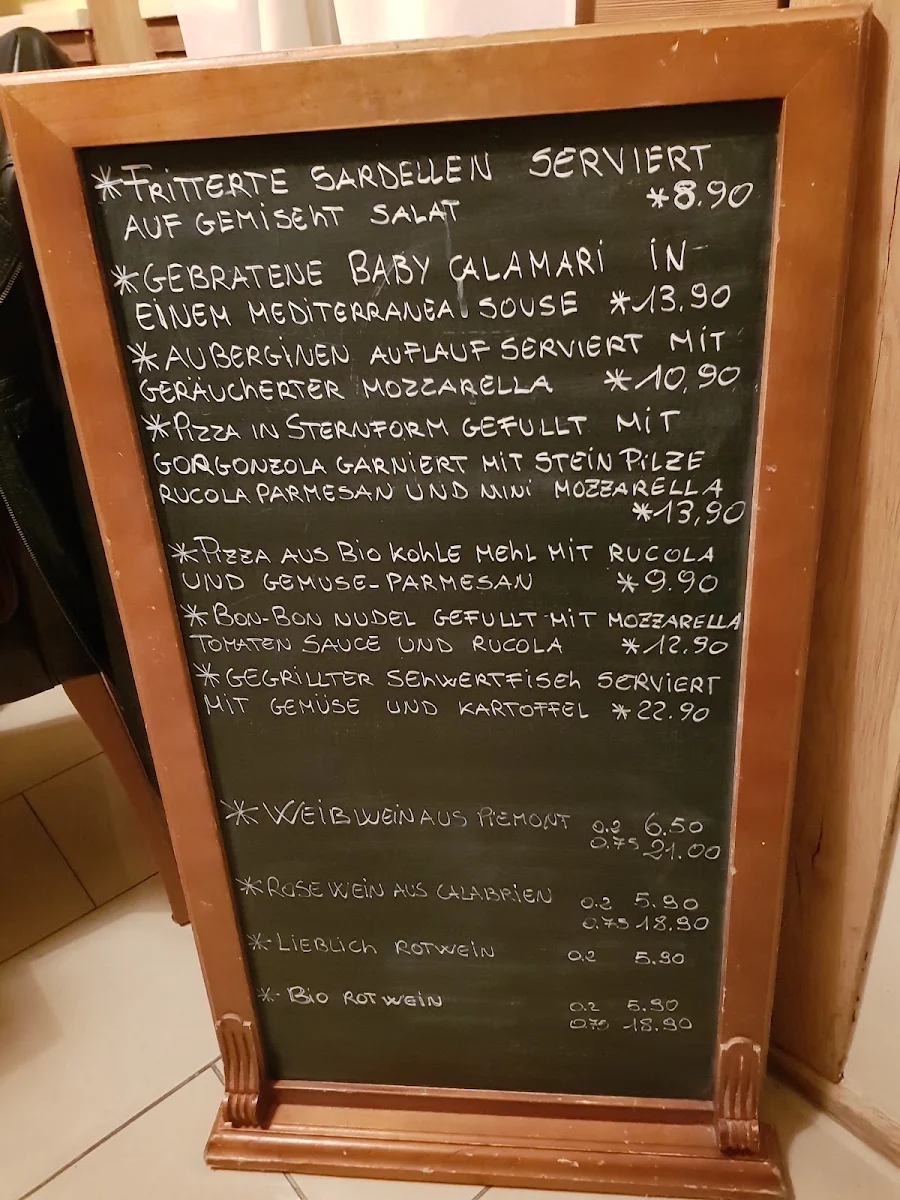 *FRITTERTE SARDELLEN SERVIERT
AUF GEMISEHT SALAT *8.90
*GEBRATENE BABY CALAMARI IN
EINEM MEDITERRANEA SOUSE *13,90
*AUBERGINEN AUFLAUF SERVIERT MIT
GERÄUCHERTER MOZZARELLA *10,90
*PIZZA IN STERNFORM GEFULLT MIT
GORGONZOLA GARNIERT MIT STEIN PILZE
RUCOLA PARMESAN UND MINI MOZZARELLA
*13,90
*PIZZA AUS BIO KOHLE MEHL MIT RUCOLA
UND GEMUSE-PARMESAN *9.90
*BON-BON NUDEL GEFULLT MIT MOZZARELLA
TOMATEN SAUCE UND RUCOLA *12.90
*GEGRILLTER SEHWERTFISEH SERVIERT
MIT GEMÜSE UND KARTOFFEL *22.90
*WEIßWEIN AUS PIEMONT 0.2 6.50
0.75 21.00
*ROSE WEIN AUS CALABRIEN 0.2 5.90
0.75 18.90
*LIEBLICH ROTWEIN 0.2 5.90
*BIO ROTWEIN 0.2 5.90
0.75 18.90